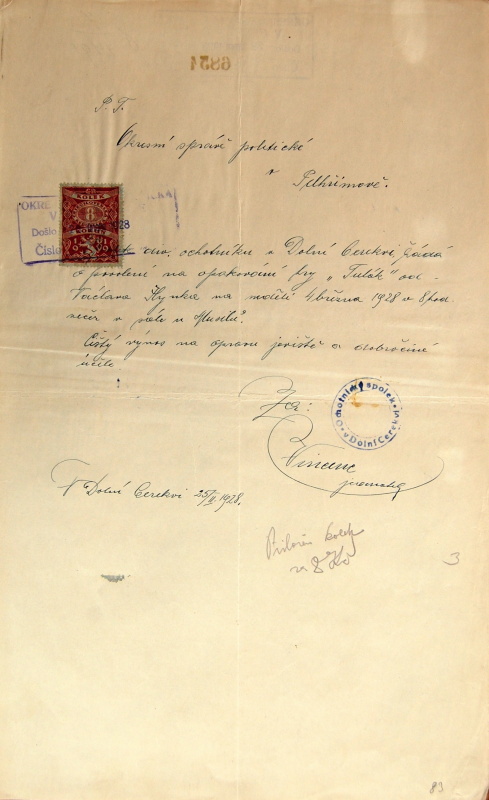 6854
P. T.
Okresní správě politické
v Pelhřimově.
OKRE
V
Došlo 1928
Číslo
KOLEK
8
KORUN
div. ochotníků v Dolní Cerekvi, žádá
o povolení na opakování hry „Tulák" od
Václava Hynka na neděli 4 března 1928 v 8 hod
večer v sále u Musilů.
Čistý výnos na opravu jeviště a dobročinné
účele
Za:
Ochotnický spolek
v Dolní Cerekvi
Vincenc
jednatel
V Dolní Cerekvi 25/II 1928.
Přiložen kolek
za 8 Kč
3
83